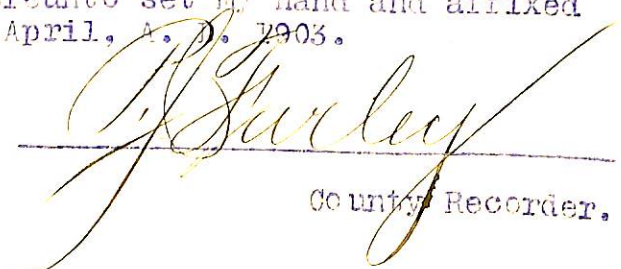 set my hand and affixed
April, A. D. 1903.
Farley
County Recorder.